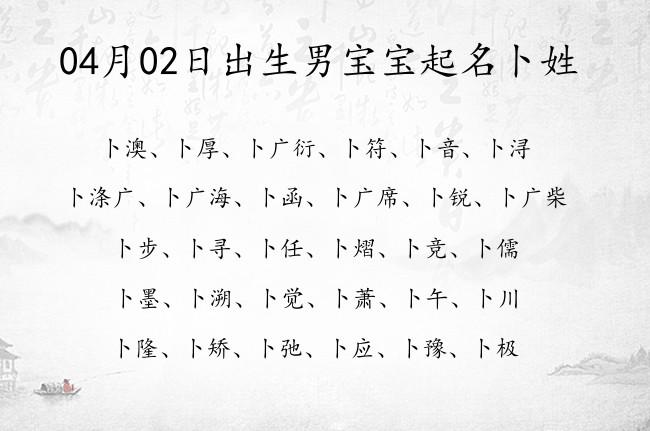 04月02日出生男宝宝起名卜姓
卜澳、卜厚、卜广衍、卜符、卜音、卜浔
卜涤广、卜广海、卜函、卜广席、卜锐、卜广柴
卜步、卜寻、卜任、卜熠、卜竞、卜儒
卜墨、卜溯、卜觉、卜萧、卜午、卜川
卜隆、卜矫、卜弛、卜应、卜豫、卜极